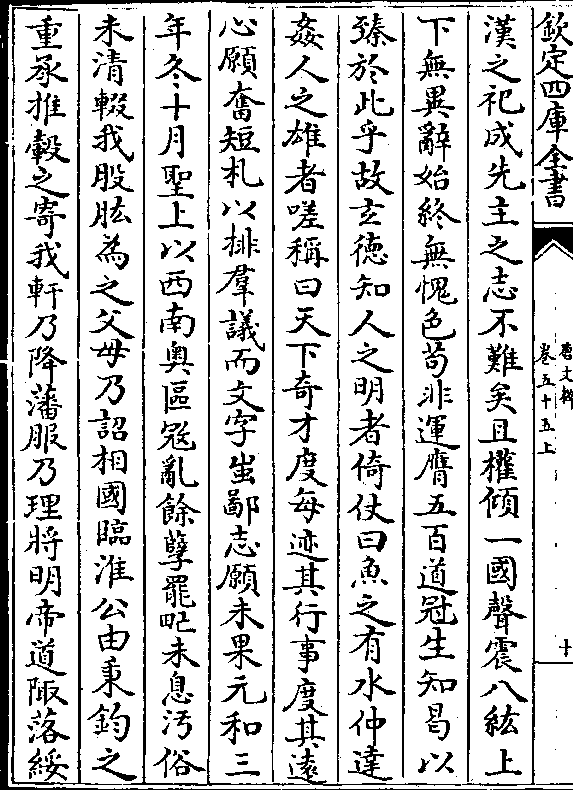 欽定四庫全書
唐文粹
卷五十五上
十
漢之祀成先主之志不難矣且權傾一國聲震八紘上
下無異辭始終無愧色苟非運膺五百道冠生知曷以
臻於此乎故玄德知人之明者倚仗曰魚之有水仲達
姦人之雄者嗟稱曰天下奇才度每迹其行事度其遠
心願奮短札以排羣議而文字蚩鄙志願未果元和三
年冬十月聖上以西南奥區冦亂餘孽罷甿未息汚俗
未清輟我股肱為之父母乃詔相國臨淮公由秉鈞之
重承推轂之寄我軒乃降藩服乃理將明帝道陬落綏